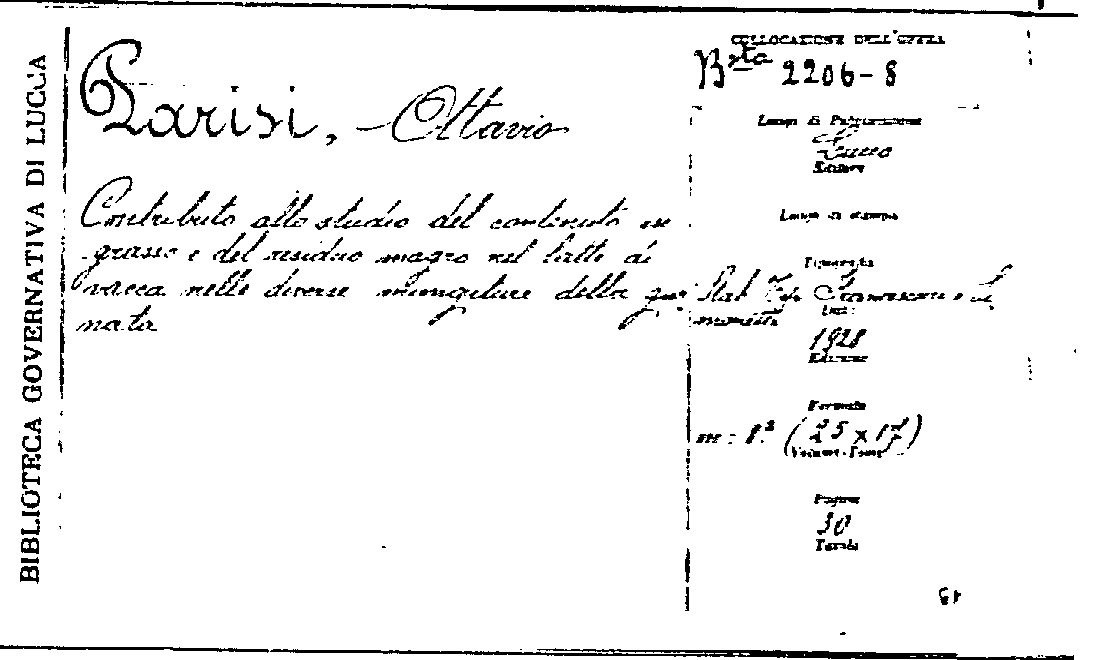 BIBLIOTECA GOVERNATIVA DI LUCCA
Parisi, Ottavio
Contributo allo studio del contenuto in
grasso e del residuo magro nel latte di
vacca nelle diverse mungiture della gior
nata
COLLOCAZIONE DELL'OPERA
Bsta 2206-8
Luogo di Pubblicazione
Lucca
Editore
Luogo di stampa
Tipografia
Stab. Tip.
Data
1928
Edizione
Formato
in: 8.° (25 x 17)
Volumi-Tomi
Pagine
30
Tavole